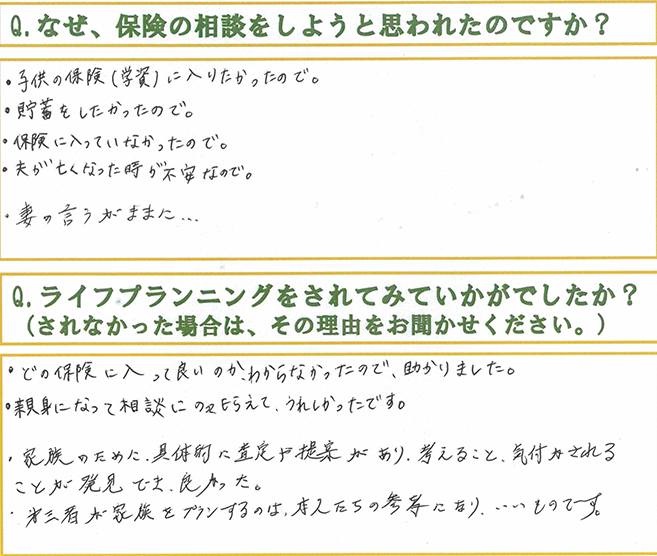 Q.なぜ、保険の相談をしようと思われたのですか？
・子供の保険(学資)に入りたかったので。
・貯蓄をしたかったので。
・保険に入っていなかったので。
・夫が亡くなった時が不安なので。
・妻の言うがままに...
Q.ライフプランニングをされてみていかがでしたか？
（されなかった場合は、その理由をお聞かせください。）
・どの保険に入って良いのか、わからなかったので、助かりました。
・親身になって相談にのってもらえて、うれしかったです。
・家族のために、具体的に査定や提案があり、考えること、気付かされる
ことが発見でき、良かった。
・第三者が家族をプランするのは、本人たちの参考になり、いいものです。